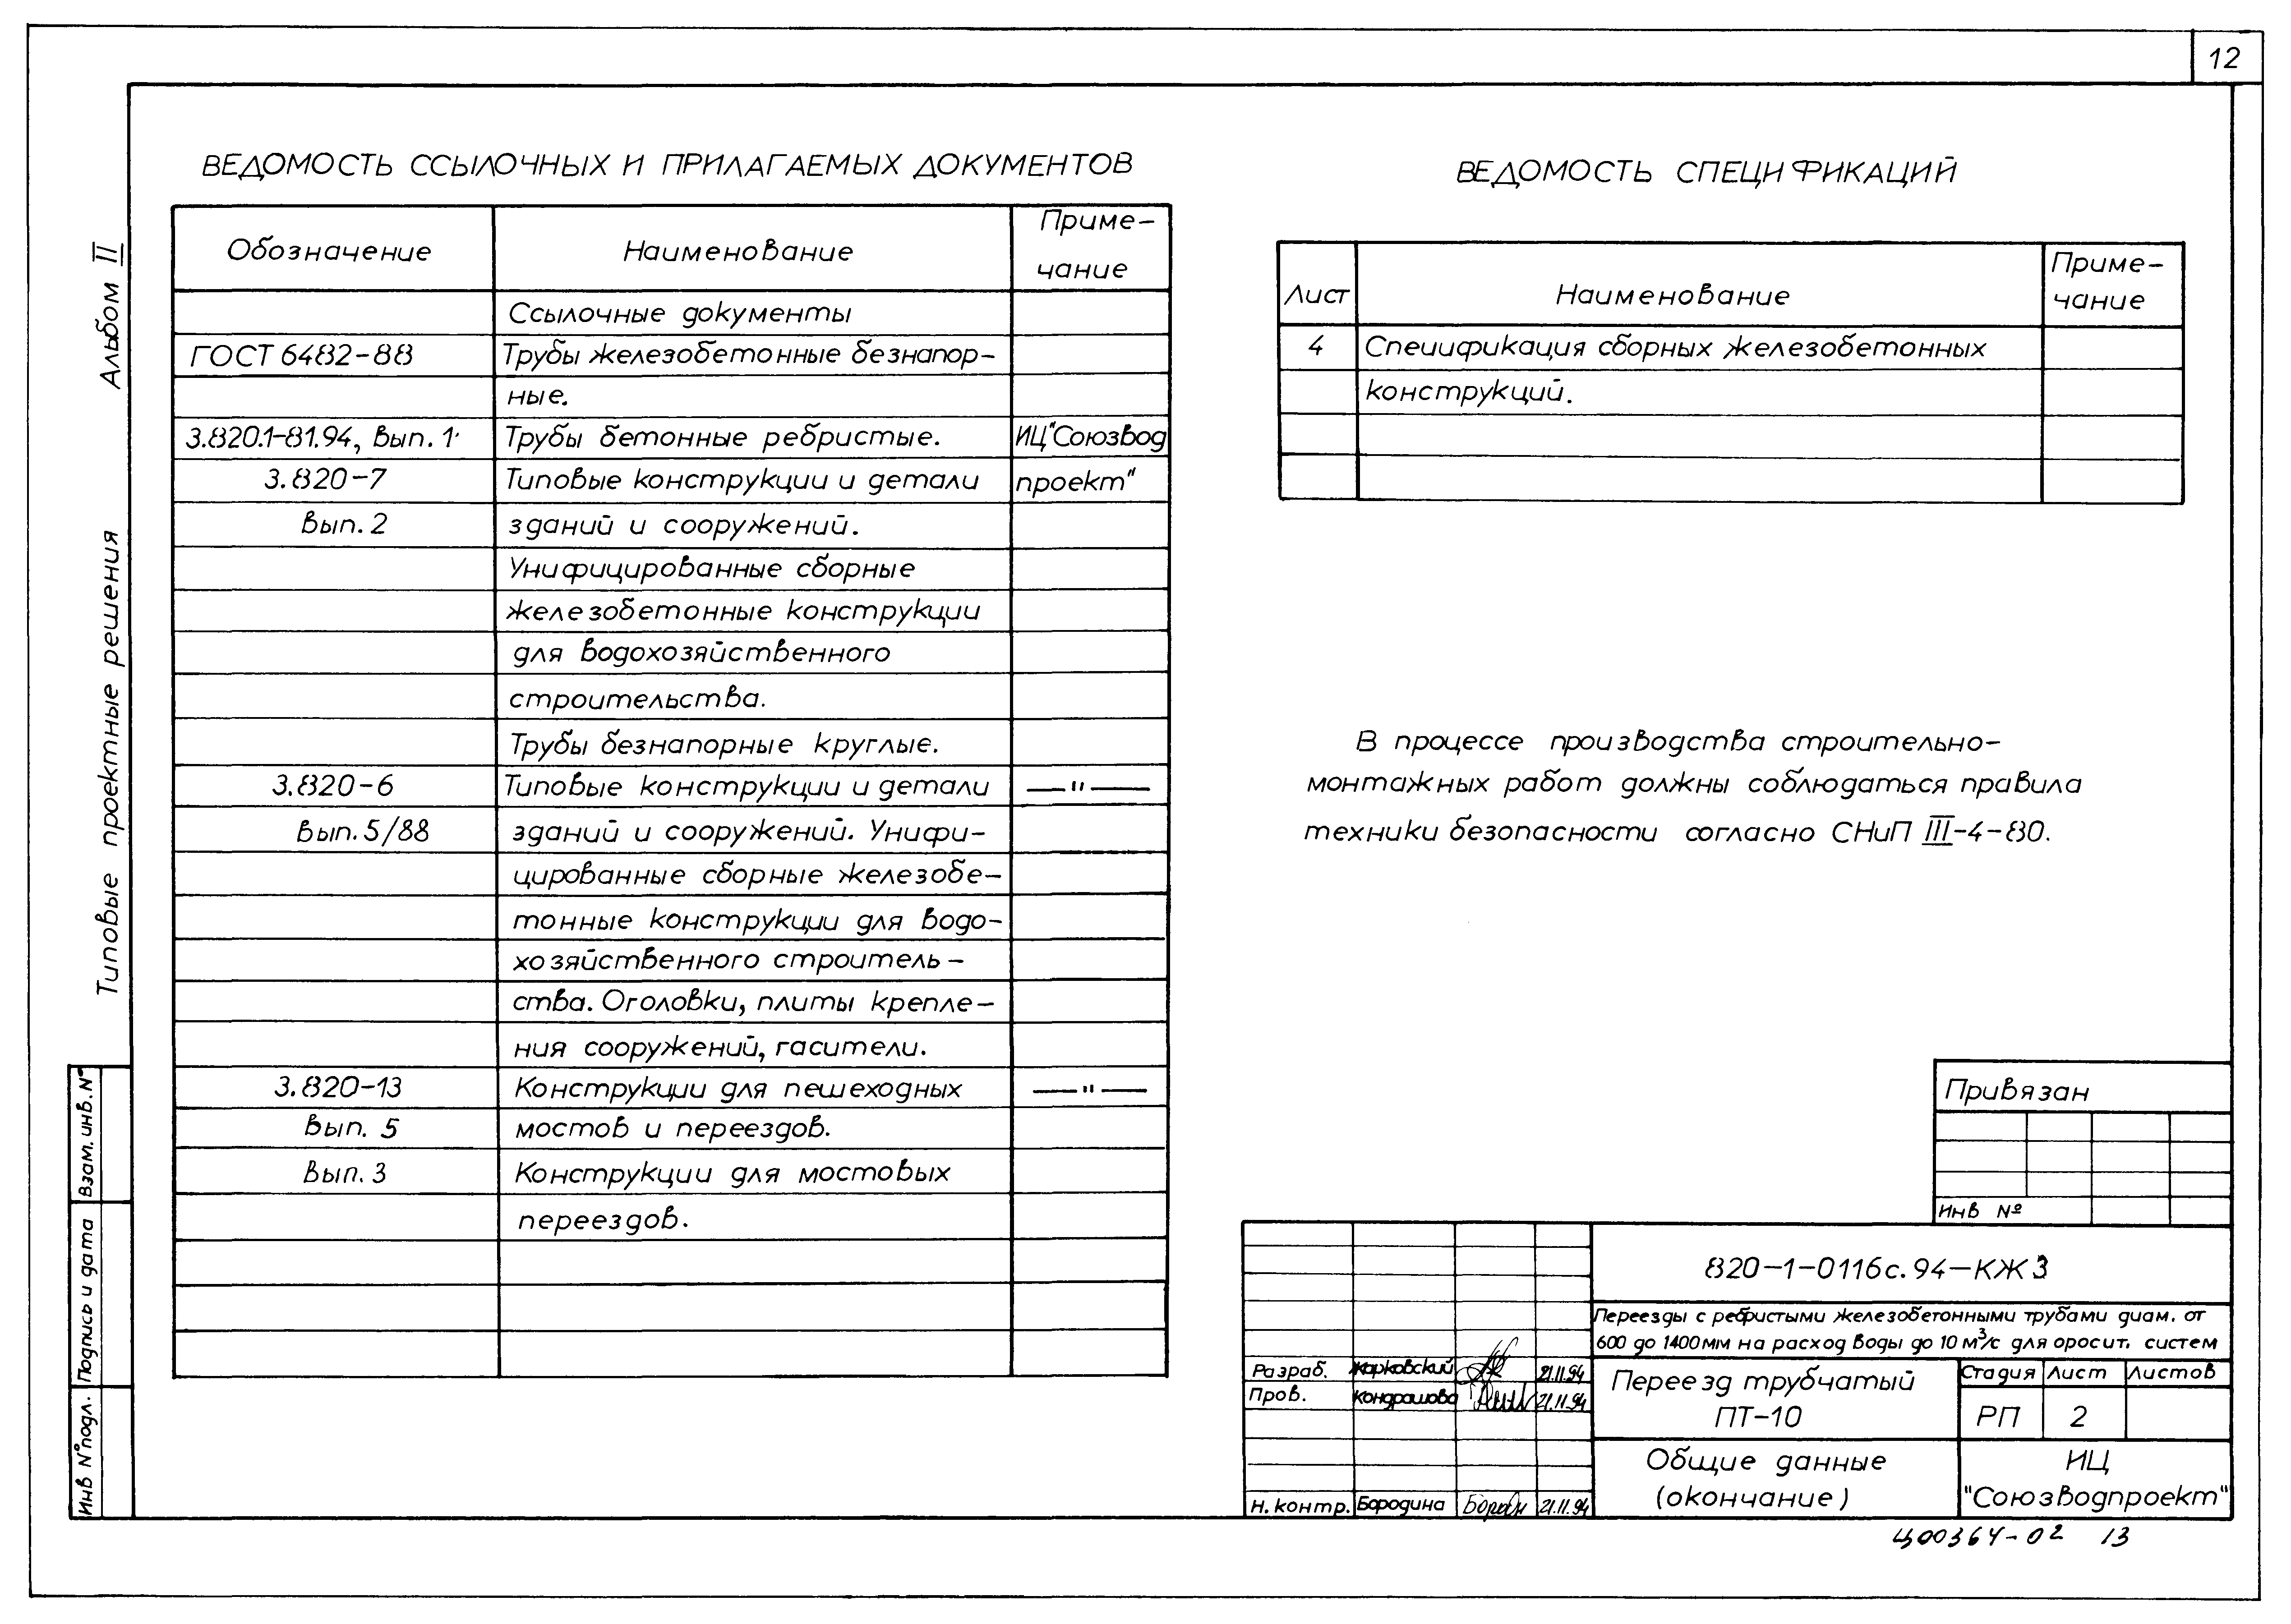 12
Альбом II
Типовые проектные решения
ВЕДОМОСТЬ ССЫЛОЧНЫХ И ПРИЛАГАЕМЫХ ДОКУМЕНТОВ
Обозначение Наименование Приме-
чание
Ссылочные документы
ГОСТ 6482-88 Трубы железобетонные безнапор-
ные.
3.820.1-81.94, вып. 1 Трубы бетонные ребристые. ИЦ"Союзвод
3.820-7 Типовые конструкции и детали проект"
вып. 2 зданий и сооружений.
Унифицированные сборные
железобетонные конструкции
для водохозяйственного
строительства.
Трубы безнапорные круглые.
3.820-6 Типовые конструкции и детали —"—
вып. 5/88 зданий и сооружений. Унифи-
цированные сборные железобе-
тонные конструкции для водо-
хозяйственного строитель-
ства. Оголовки, плиты крепле-
ния сооружений, гасители.
3.820-13 Конструкции для пешеходных —"—
вып. 5 мостов и переездов.
Вып. 3 Конструкции для мостовых
переездов.
ВЕДОМОСТЬ СПЕЦИФИКАЦИЙ
Лист Наименование Приме-
чание
4 Спецификация сборных железобетонных
конструкций.
В процессе производства строительно-
монтажных работ должны соблюдаться правила
техники безопасности согласно СНиП III-4-80.
Привязан
Инв №
820-1-0116с.94-КЖ3
Переезды с ребристыми железобетонными трубами диам. от
600 до 1400мм на расход воды до 10 м³/с для оросит. систем
Разраб. Жарковский 21.11.94
Пров. Кондрашова 21.11.94
Н. контр. Бородина 21.11.94
Переезд трубчатый
ПТ-10
Стадия Лист Листов
РП 2
Общие данные
(окончание)
ИЦ
"Союзводпроект"
Взам. инв. №
Подпись и дата
Инв № подл.
Ц00364-02 13